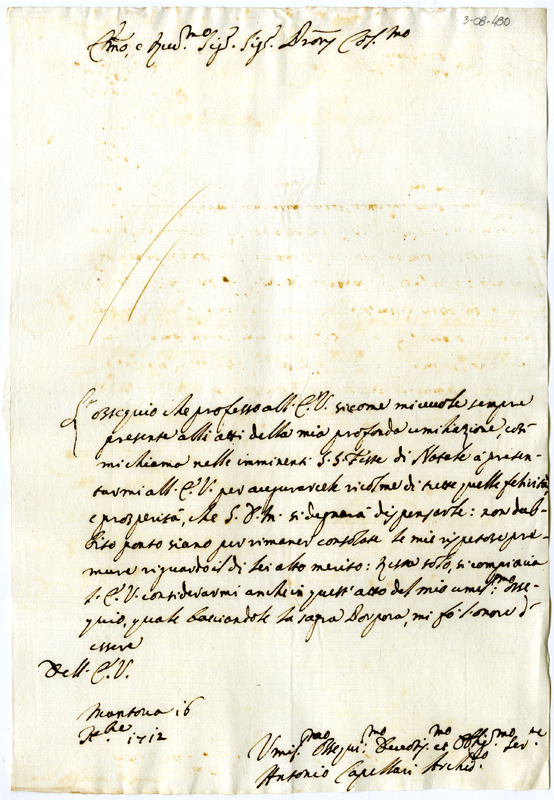 3-08-480
Em̃o, e Reu.mo Sig.r Sig.r Pron Col.mo
L'ossequio che professo all'E.V. sicome mi uuole sempre
presente alli atti della mia profonda umiliazione, così
mi chiama nelle imminenti S.S. Feste di Natale à presen-
tarmi all'E.V. per augurarcele ricolme di tutte quelle felicità
e prosperità, che S.D.M. si degnerà dispensarle: non dub-
bito ponto siano per rimaner consolate le mie rispetose pre-
mure riguardo il di lei alto merito: Resta solo, si compiacia
l'E.V. considerarmi anche in quest'atto del mio umil.mo osse-
quio, quale bacciandole la sagra Porpora, mi fò l'onore d'
essere
Dell'E.V.
Mantoua 16
Xbre 1712
Vmil.mo Ossequi.mo Deuot.mo et Obblig.mo Ser.re
Antonio Capellari Archid.o